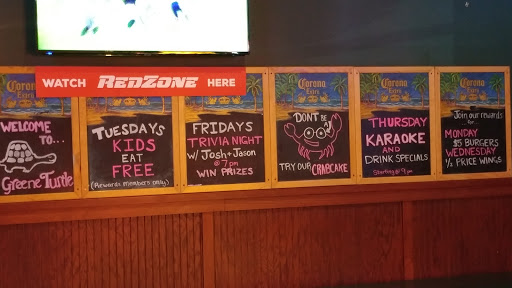 WATCH REDZONE HERE
Corona
Extra
WELCOME
TO...
Greene Turtle
TUESDAYS
KIDS
EAT
FREE
(Rewards members only)
FRIDAYS
TRIVIA NIGHT
W/ Josh + Jason
@ 7 pm
WIN PRIZES
DON'T BE
A
TRY OUR CRABCAKE
Corona
Extra
THURSDAY
KARAOKE
AND
DRINK SPECIALS
Starting @ 9pm
Corona
Extra
Join our rewards
for
MONDAY
$5 BURGERS
WEDNESDAY
1/2 PRICE WINGS